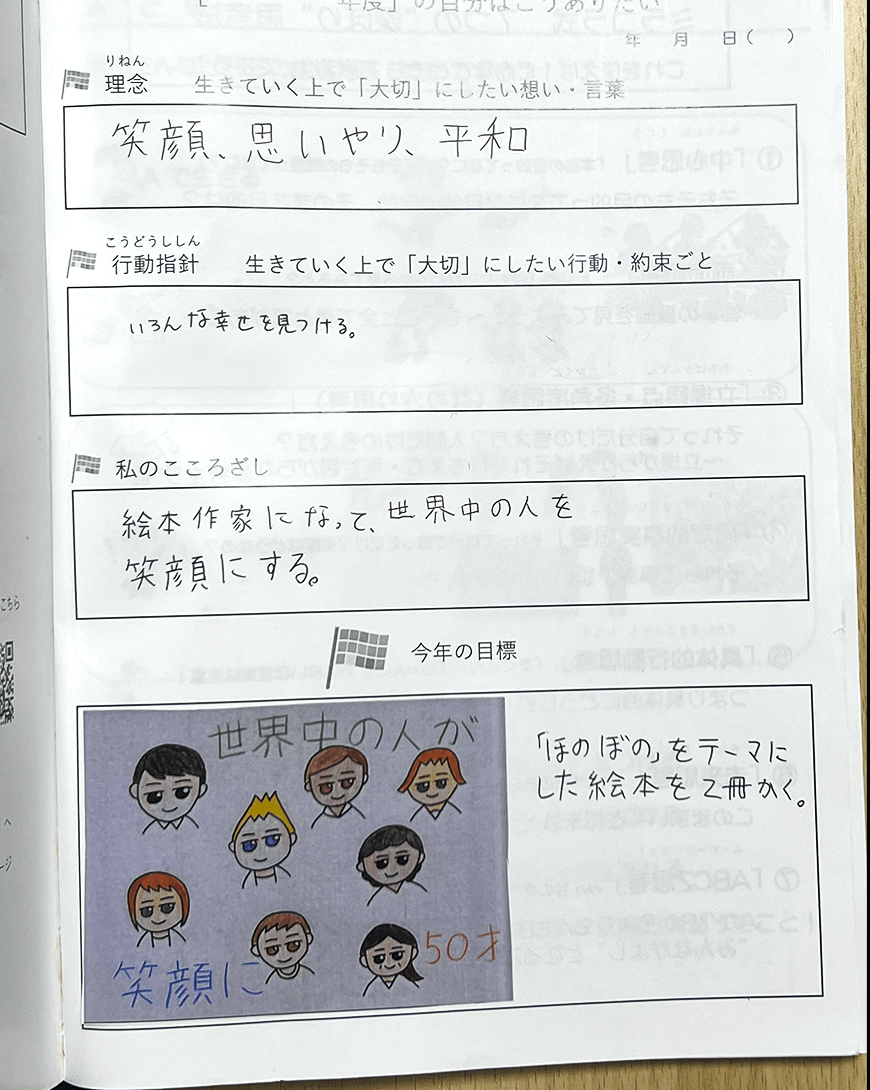 年度」の自分はこうありたい
年 月 日( )
りねん
理念 生きていく上で「大切」にしたい想い・言葉
笑顔、思いやり、平和
こうどうししん
行動指針 生きていく上で「大切」にしたい行動・約束ごと
いろんな幸せを見つける。
私のこころざし
絵本作家になって、世界中の人を
笑顔にする。
今年の目標
世界中の人が
笑顔に
50才
「ほのぼの」をテーマに
した絵本を2冊かく。
こちら